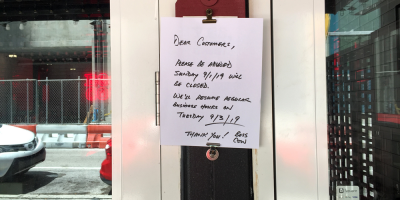 Dear Customers,
Please be advised
Sunday 9/1/19 will
be closed.
We'll resume regular
business hours on
Tuesday 9/3/19
Thank you! Boss
Cow